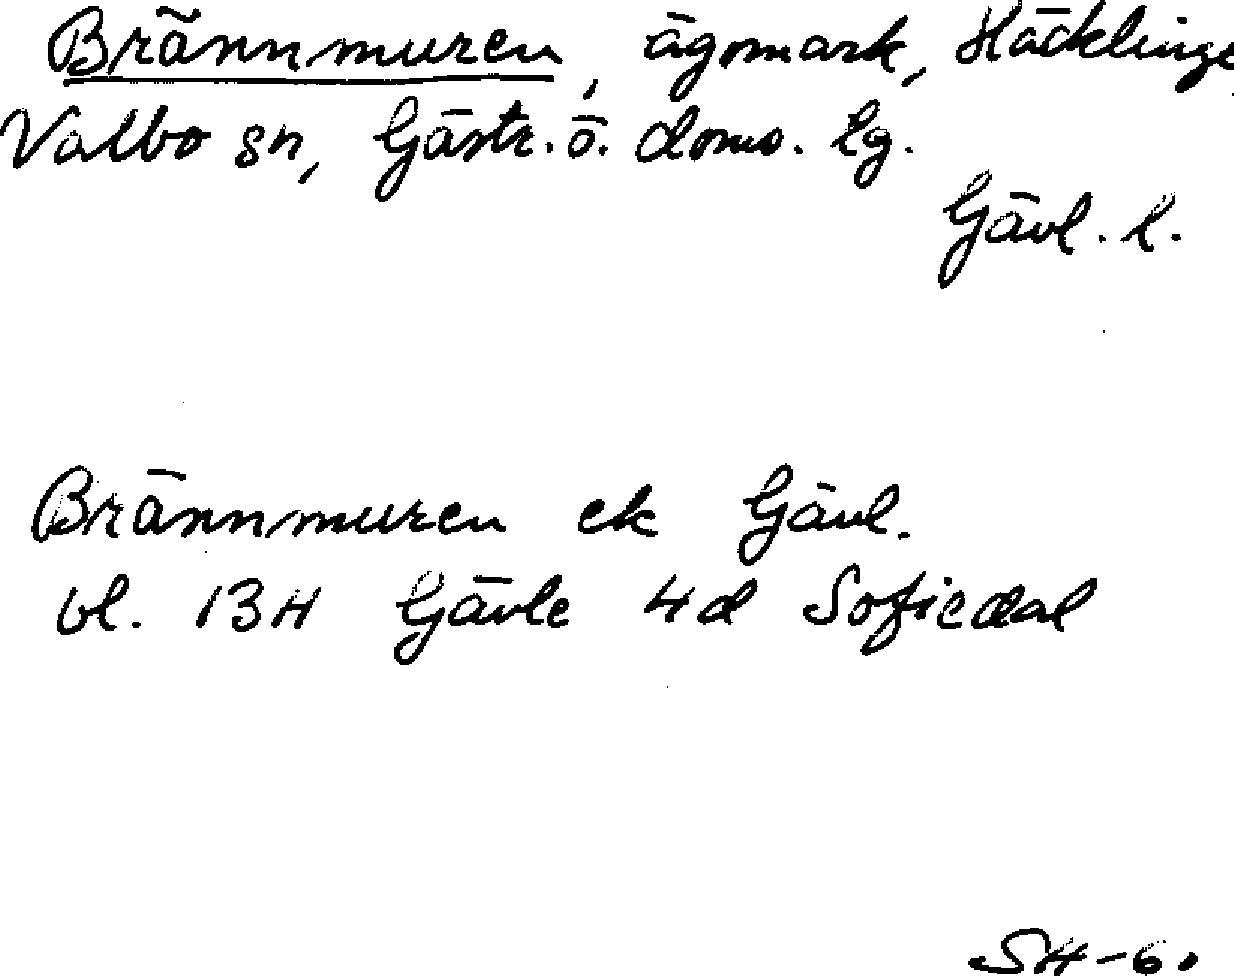 Brännmuren, ägomark, Häcklinge
Valbo sn, Gästr. ö. doms. lg.
Gävl. l.
Brännmuren ek Gävl.
bl. 13H Gävle 4d Sofiedal
SH-6.